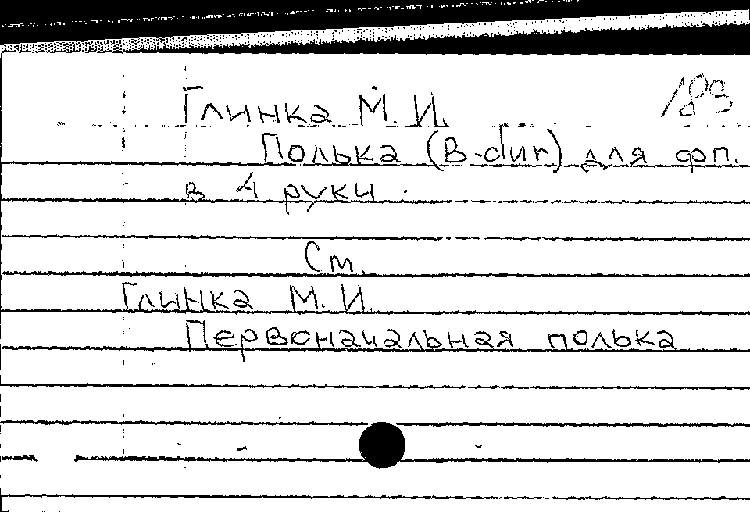 183
Глинка М. И.
Полька (B-dur) для фп.
в 4 руки.
См.
Глинка М. И.
Первоначальная полька